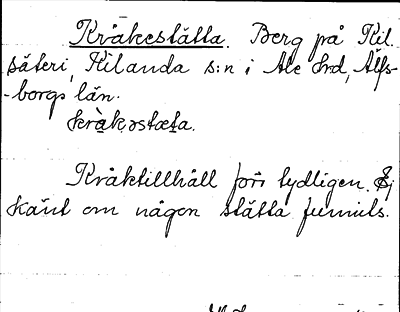 Kråkestätta. Berg på Kil.
säteri, Kilanda s:n i Ale hrd, Älfs-
-borgs län.
kråkəstæta.
Kråktillhåll förr tydligen. Ej
känt om någon stätta funnits.